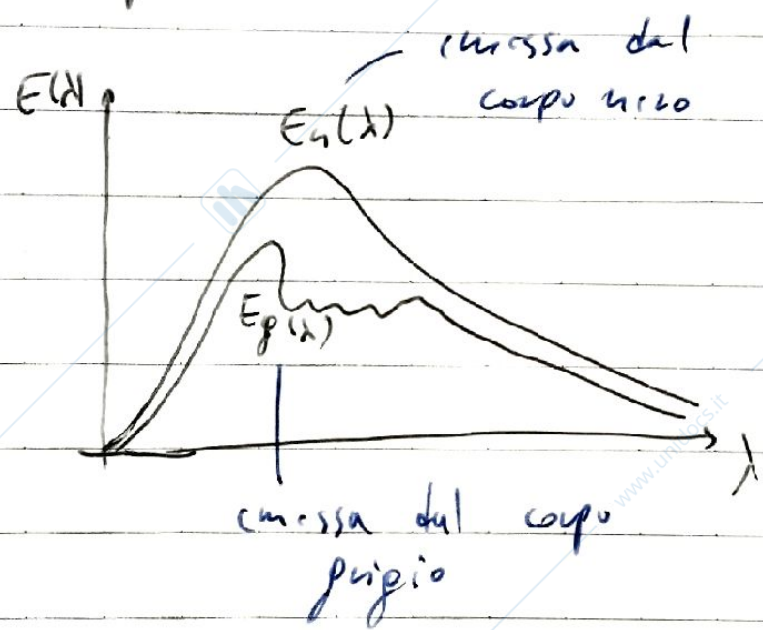 emessa dal
corpo nero
E(λ)
En(λ)
Eg(λ)
λ
emessa dal corpo
grigio
www.unidocs.it